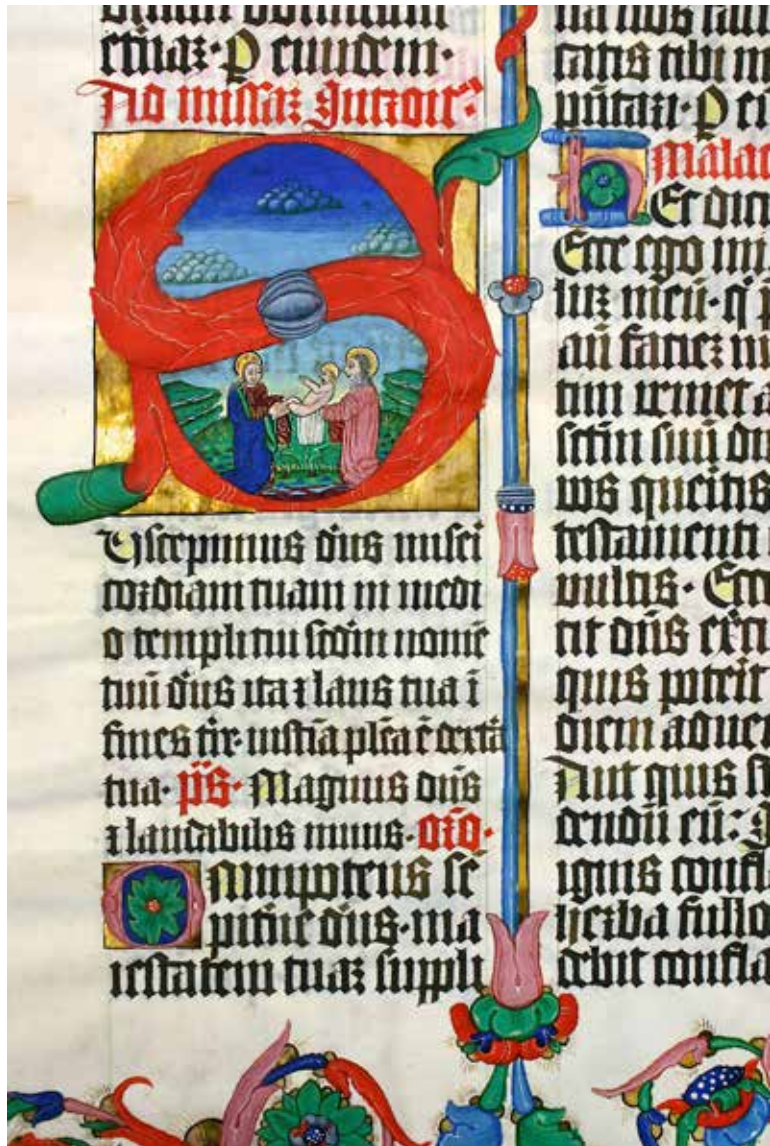 dominum
P eiundem·
Ad missaz Introit⁹
Suscepimus dn̄s misei
cordiam tuam in medi
o templi tui scd̄m nomē
tuū dn̄s ita ⁊ laus tua ī
fines tr̄r· iusticīa plēa ē dextā
tua· p̄s· Magnus dn̄s
⁊ laudabilis nimis· or̄o·
Omnipotens se
pit̄ne dn̄s· ma
iestatem tuaz suppli
na nos fam
tatis tibi m
pn̄tari· P ei
Malac
hEc dicit
Ecce ego mi
luz meū· q̄ p
an̄ faciez m
tim veniet a
sctm̄ suū do
queritis
testamenti
vultis· Ecce
cit dn̄s exci
quis poterit
diem aduen
Aut quis
dendū eū:
ignis confla
herba fullo
debit confla